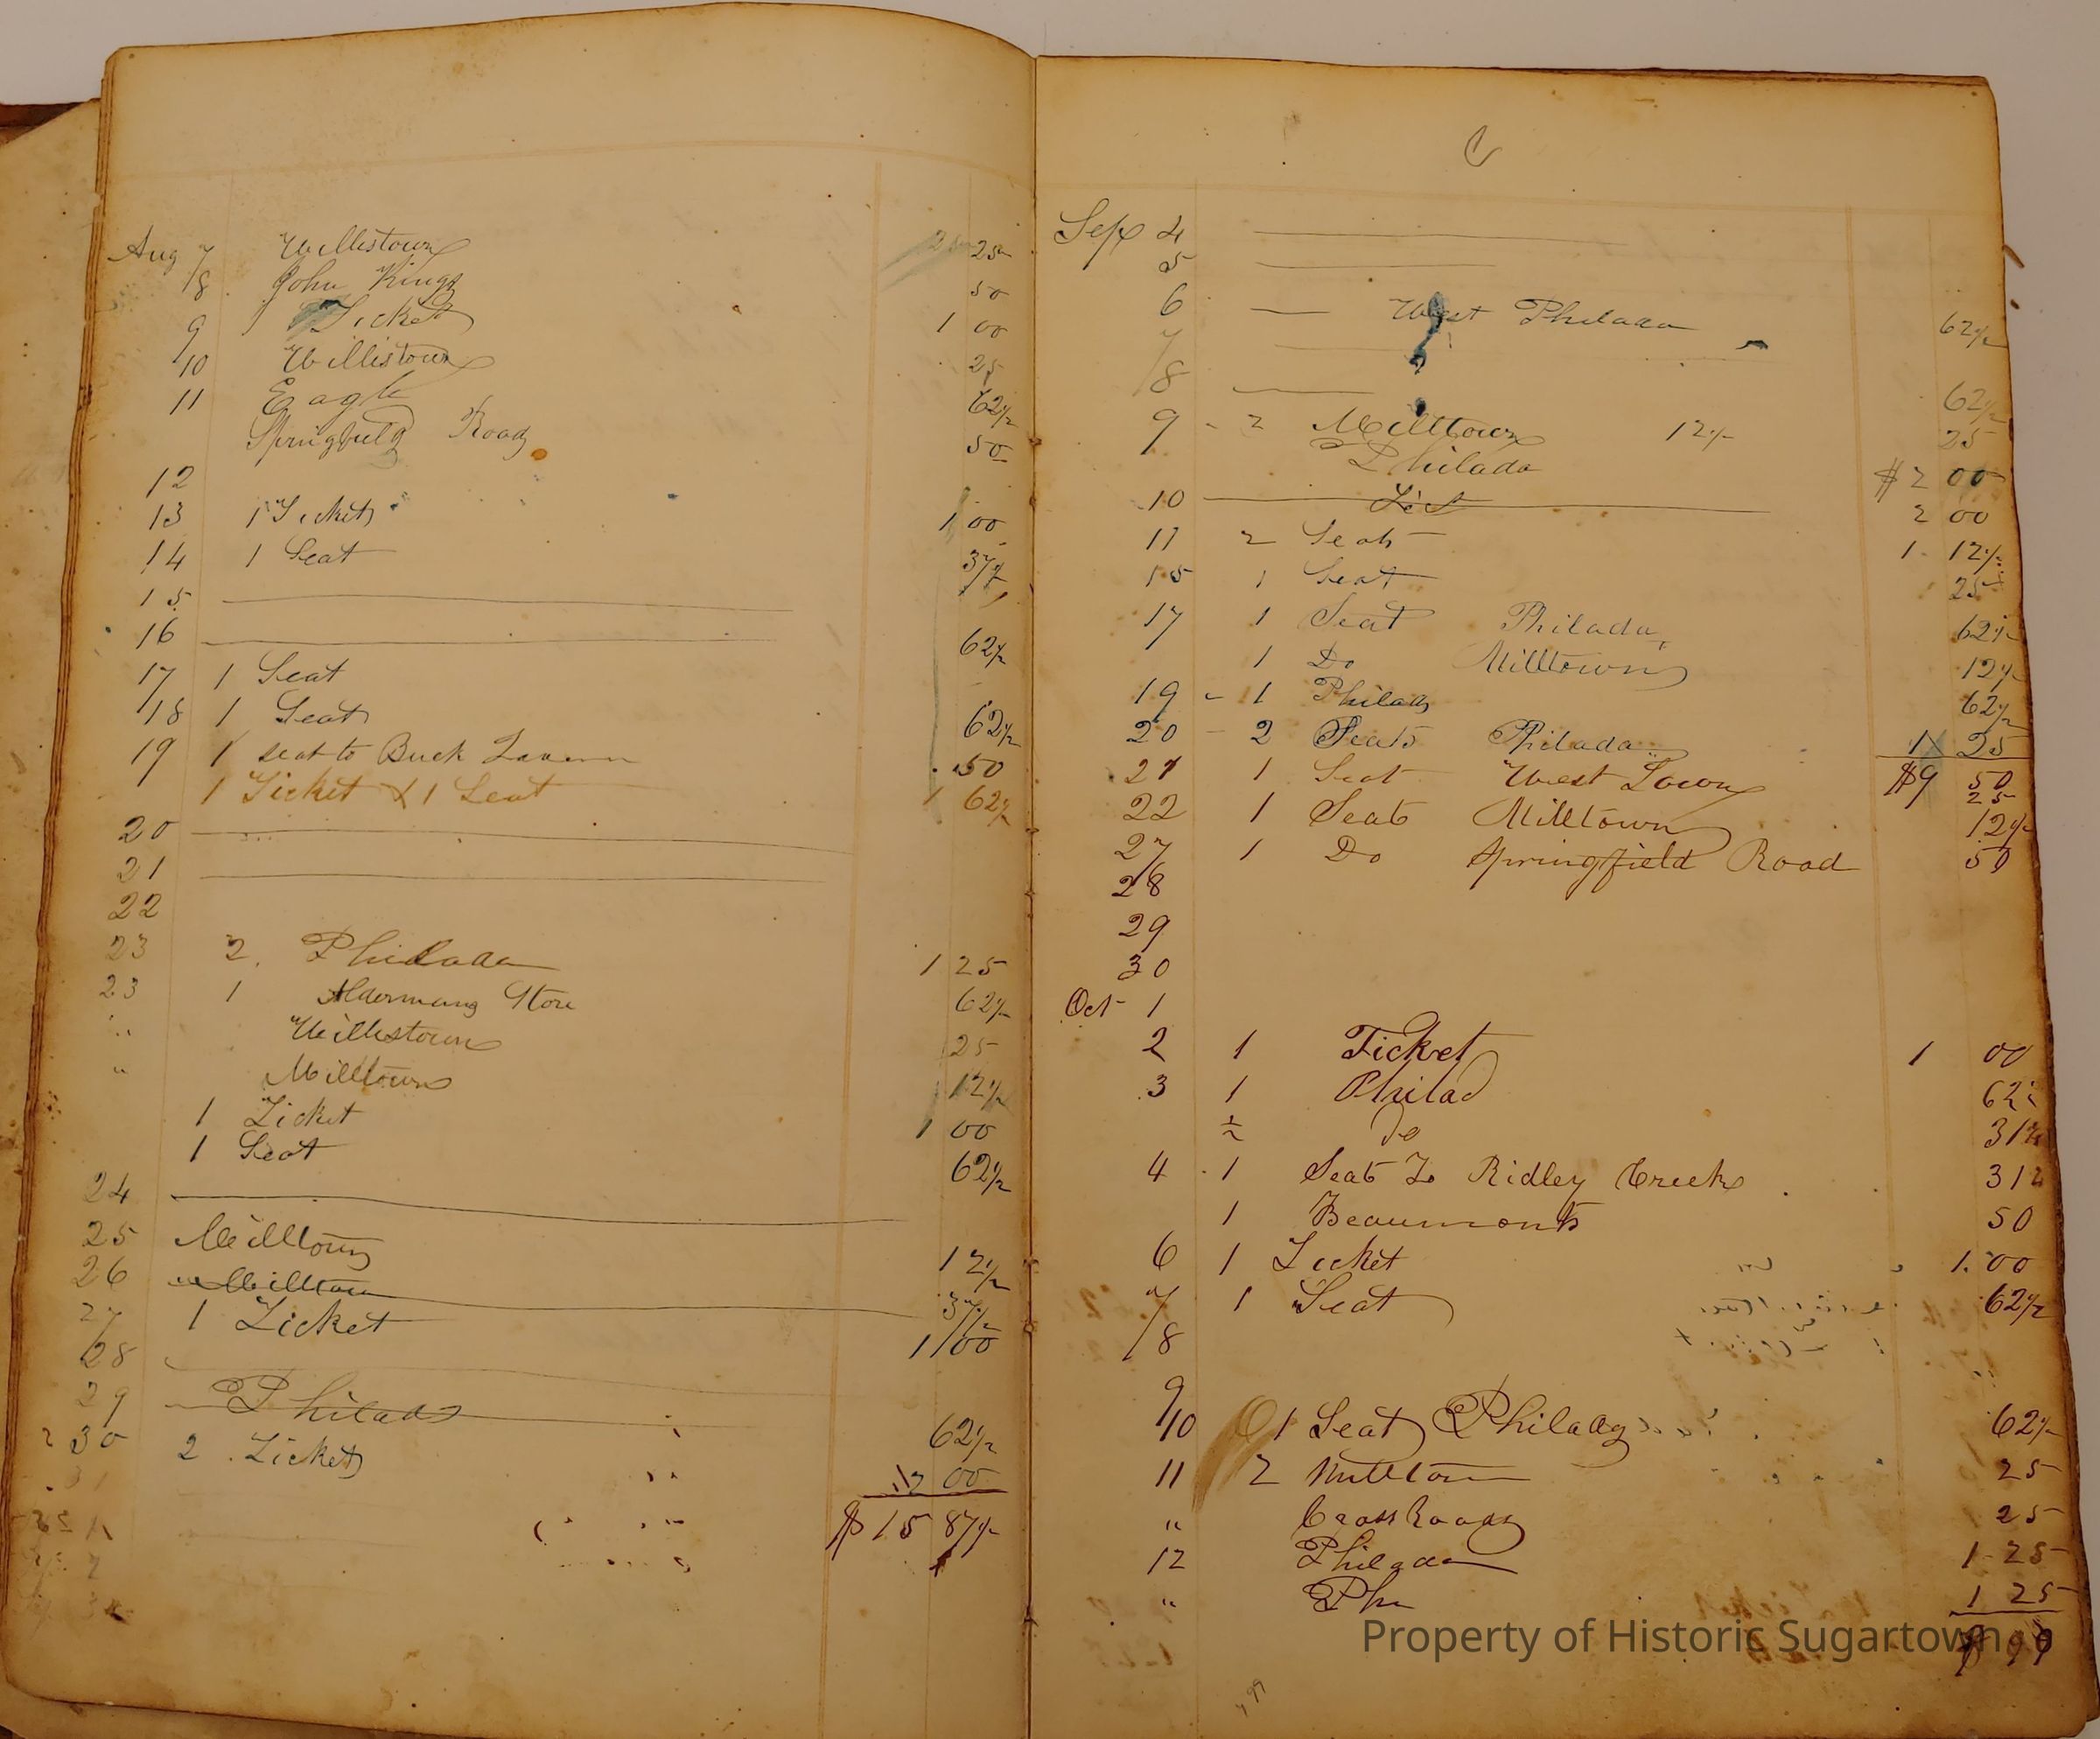 Aug 7 Willistown 25
8 John Kings 50
9 1 Ticket 1 00
10 Willistown 25
11 Eagle 62½
Springfield Road 50
12
13 1 Ticket 1 00
14 1 Seat 37½
15
16 62½
17 1 Seat
18 1 Seat 62½
19 1 seat to Buck Tavern 50
1 Ticket & 1 Seat 1 62½
20
21
22
23 2. Philada 1 25
23 1 Store 62½
" Willistown 25
" Milltown 12½
1 Ticket 1 00
1 Seat 62½
24
25 Milltown 12½
26 Milltown 37½
27 1 Ticket 1 00
28
29 Philada 62½
30 2 Ticket 2 00
31
$15 87½
Sep 4
5
6 West Philada 62½
7
8 62½
9 - 2 Milltown 12½ 25
Philada $2 00
10 2 00
11 2 Seats 1. 12½
15 1 Seat 25
17 1 Seat Philada 62½
1 Do Milltown 12½
19 - 1 Philad 62½
20 - 2 Seats Philada 1 25
$9 50
21 1 Seat West Town 25
22 1 Seat Milltown 12½
27 1 Do Springfield Road 50
28
29
30
Oct 1
2 1 Ticket 1 00
3 1 Philad 62½
½ do 31¼
4 1 Seat To Ridley Creek 31¼
1 Beaumonts 50
6 1 Ticket 1.00
7 1 Seat 62½
8
9
10 1 Seat Philada 62½
11 2 Milltown 25
" Cross Roads 25
12 Philada 1 25
" Phi 1 25
Property of Historic Sugartown